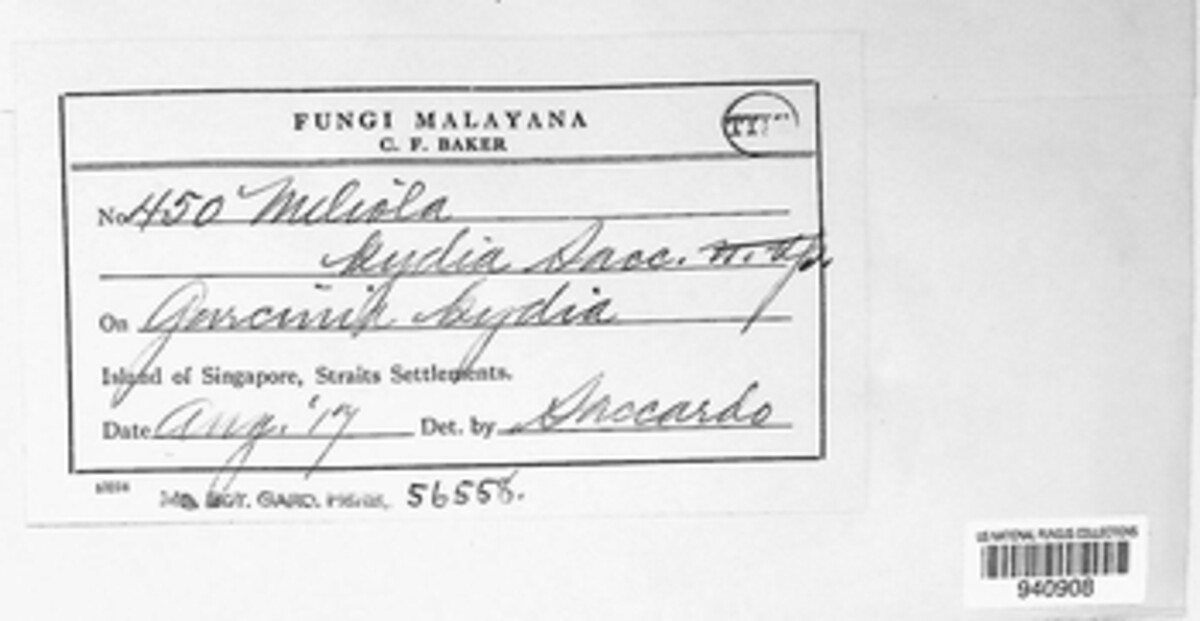 FUNGI MALAYANA
TYPE
C. F. BAKER
No. 450 Meliola
kydia Sacc. n. sp.
On Garcinia kydia
Island of Singapore, Straits Settlements.
Date Aug. '17 Det. by Saccardo
MO. BOT. GARD. HERB. 56558.
US NATIONAL FUNGUS COLLECTIONS
940908